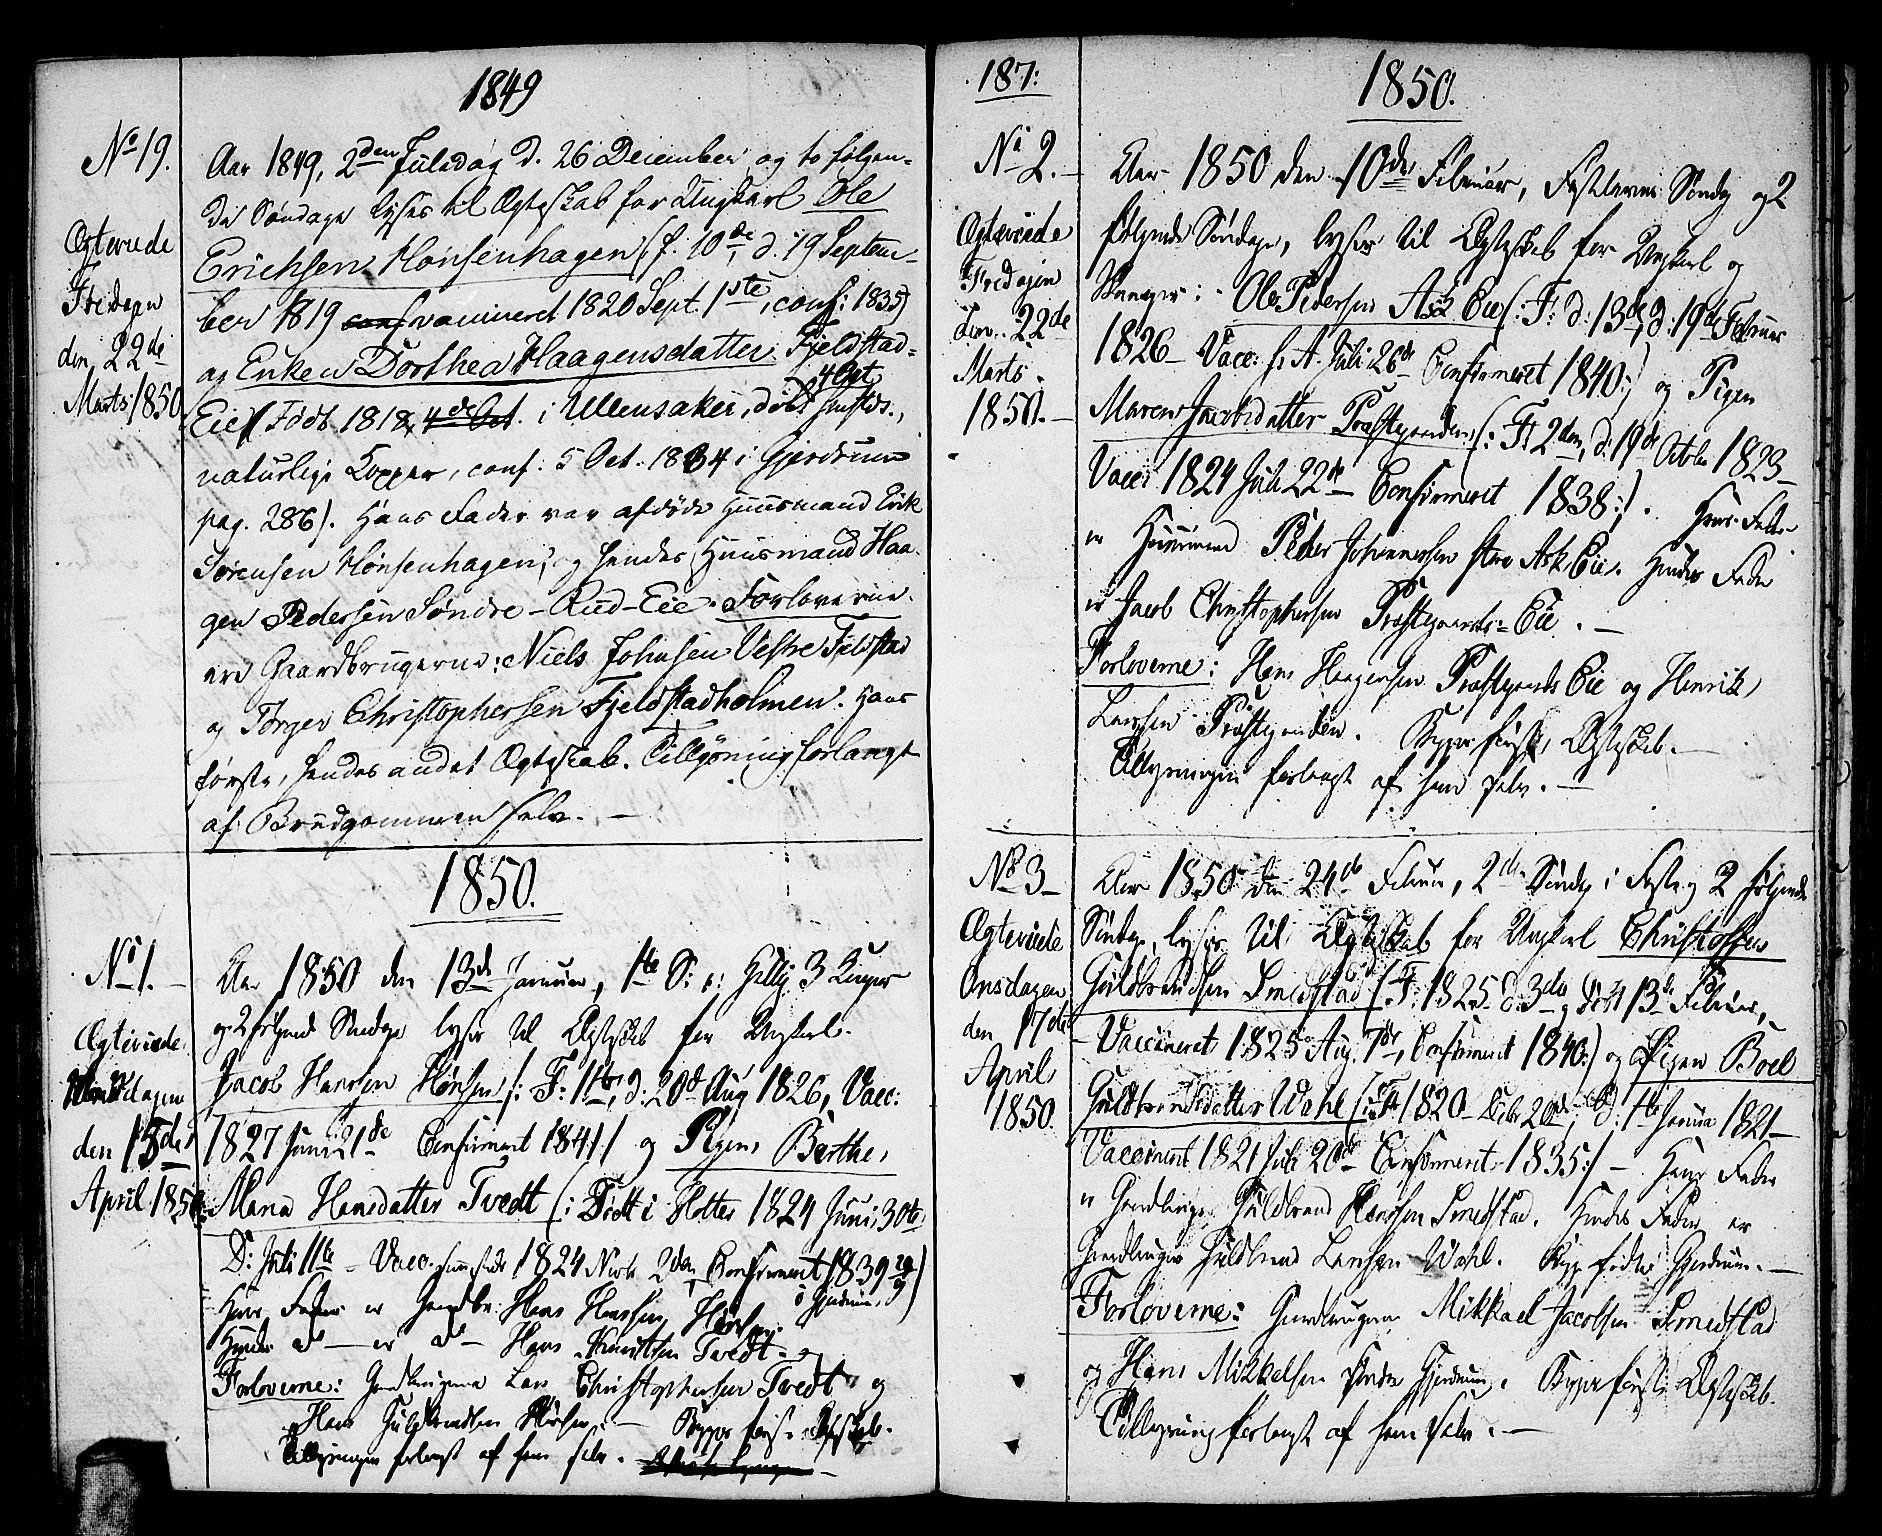 1849
No 19.
Aar 1849, 2den Juledag d. 26 December og to følgen-
de Søndage lyses til Ægteskab for Ungkarl Ole
Erichsen Hønsenhagen (f. 10de, d. 19 Septem-
ber 1819 vaccineret 1820 Sept. 1ste, conf: 1835)
og Enken Dorthea Haagensdatter Fjeldstad-
4 Oct
Eie (Født 1818, 4de Oct. i Ullensaker, døbt
naturlige Kopper, conf. 5 Oct. 1834 i Gjerdrum
pag. 286). Hans Fader var afdøde Huusmand Erik
Sørensen Hønsenhagen, og hendes Huusmand Haa-
gen Pedersen Søndre-Rud-Eie. Forloverne
ere Gaardbrugerne: Niels Johnsen Vestre Fjeldstad
og Torger Christophersen Fjeldstadholmen. Hans
første, hendes andet Ægteskab. Tillysning forlangt
af Brudgommen selv. —
Ægteviede
Fredagen
den 22de
Marts 1850
1850.
No 1. —
Aar 1850 den 13de Januar, 1ste S: e: Hellig 3 Konger
og 2 følgende Søndage lyses til Ægteskab for Ungkarl
Jacob Hansen Hønsen (: F: 11te, d: 20de Aug 1826, Vacc:
1827 Juni 21de Confirmeret 1841 :) og Pigen Berthe
Maria Hansdatter Tvedt (: Født i Holter 1824 Juni 30te,
D: Juli 11te — Vacc. sammesteds 1824 2den Confirmeret 1839
i Gjerdrum :)
Hans Fader er Gaardbr. Hans Hansen Hønsen.
Hendes do — er do — Hans Knudsen Tvedt. —
Forloverne: Gaardbrugerne Lars Christophersen Tvedt og
Hans Guldbrandsen Hønsen. — Begges første Ægteskab.
Tillysningen forlangt af ham selv. —
Ægteviede
dagen
den 15de
April 1850.
187:
1850.
No 2. —
Aar 1850 den 10de Februar, Fastelavns Søndag og 2
følgende Søndage, lyses til Ægteskab for Ungkarl og
Ole Pedersen Ask Eie (: F: d: 13de, d: 19de Februar
1826 — Vacc: s. A. Juli 26de Confirmeret 1840 :) og Pigen
Maren Jacobsdatter Præstegaarden (: F: 2den, d: 19de Octbr 1823 —
Vacc: 1824 Juli 22de — Confirmeret 1838 :). Hans Fader
er Huusmand Peder Johannessen Ask Eie. Hendes Fader
er Jacob Christophersen Præstegaards-Eie. —
Forloverne: Hans Haagensen Præstegaards Eie og Henrik
Larssen Præstegaarden. Begges første Ægteskab. —
Tillysningen forlangt af ham selv. —
Ægteviede
Fredagen
den 22de
Marts
1850. —
No 3 —
Aar 1850 den 24de Februar, 2den Søndag i Faste og 2 følgende
Søndage, lyses til Ægteskab for Ungkarl Christoffer
Guldbrandsen Smedstad (: F: 1825 d: 3die og døbt 13de Februar,
— Vaccineret 1825 Aug. 7de, Confirmeret 1840 :) og Pigen Boel
Guldbrandsdatter Wahl (: F: 1820 Decbr 20de, D: 1ste Januar 1821 —
Vaccineret 1821 Juli 20de Confirmeret 1835 :) — Hans Fader
er Gaardbruger Guldbrand Hansen Smedstad. Hendes Fader er
Gaardbruger Guldbrand Larssen Wahl. Begge fødte i Gjerdrum. —
Forloverne: Gaardbrugerne Mikkael Jacobsen Smedstad
og Hans Mikkelsen Søndre Gjerdrum. Begges første Ægteskab.
Tillysning forlangt af ham selv. —
Ægteviede
Onsdagen
den 17de
April
1850.